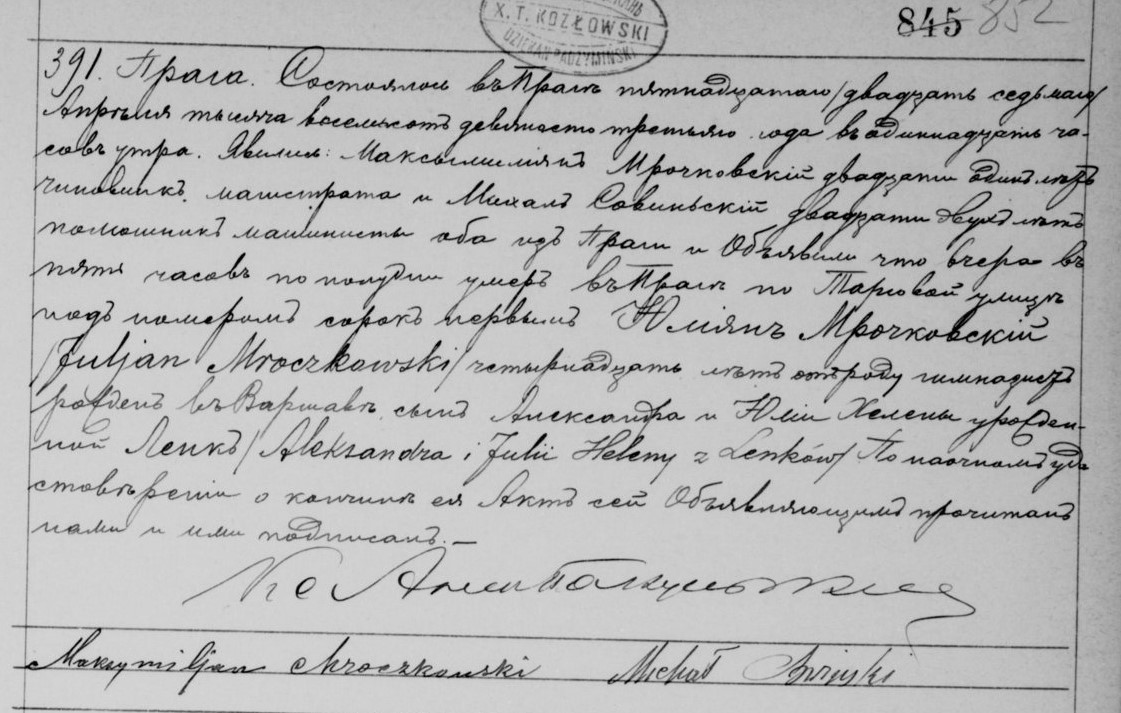 X. T. KOZŁOWSKI
DZIEKAN RADZYMIŃSKI
845 852
391. Прага. Состоялось въ Праге пятнадцатаго /двадцать седьмаго/
Апрѣля тысяча восемьсотъ девяносто третьяго года въ одиннадцать ча-
совъ утра. Явились: Максымиліянъ Мрочковскій двадцати одинъ лѣтъ
чиновникъ магистрата и Михалъ Совинскій двадцати двухъ лѣтъ
помошникъ машинисты оба изъ Праги и Объявили что вчера въ
пять часовъ по полудни умеръ въ Праге по Тарговой улицѣ
подъ номеромъ сорокъ первымъ Юліянъ Мрочковскій
/Juljan Mroczkowski/ четырнадцать лѣтъ отъ роду гимназистъ
рожденъ въ Варшавѣ сынъ Александра и Юліи Хелены урожден-
ной Ленкъ /Aleksandra i Julii Heleny z Lenków/ По наочномъ удо
стовѣреніи о кончинѣ ея Актъ сей Объявляющимъ прочитанъ
нами и ими подписанъ. —
Maksymiljan Mroczkowski Michał